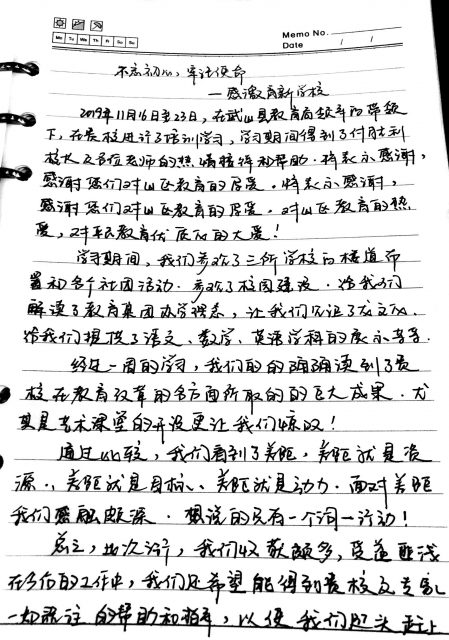 Memo No.
Mo Tu We Th Fr Sa Su
Date / /
不忘初心，牢记使命
—感激育新学校
2019年11月16日至23日，在武山县教育局领导的带领
下，在贵校进行了培训学习，学习期间得到了付胜利
校长及各位老师的热情接待和帮助．特表示感谢，
感谢您们对山区教育的厚爱．特表示感谢，
感谢您们对山区教育的厚爱．对山区教育的热
爱，对平民教育伏底心的大爱！
学习期间，我们参观了三所学校的楼道布
置和各个社团活动．参观了校园建设．给我们
解读了教育集团办学理念，让我们见证了
给我们提供了语文、数学、英语学科的展示考察．
经过一周的学习，我们的的确确读到了贵
校在教育改革的各方面所取的的巨大成果．尤
其是艺术课堂的开设更让我们惊叹！
通过比较，我们看到了差距，差距就是资
源．、差距就是目标、差距就是动力．面对差距
我们感触颇深．想说的只有一个词—行动！
总之，此次之行，我们收获颇多，受益匪浅
在今后的工作中，我们还希望能得到贵校及专家
一如既往的帮助和指导，以便我们迎头赶上